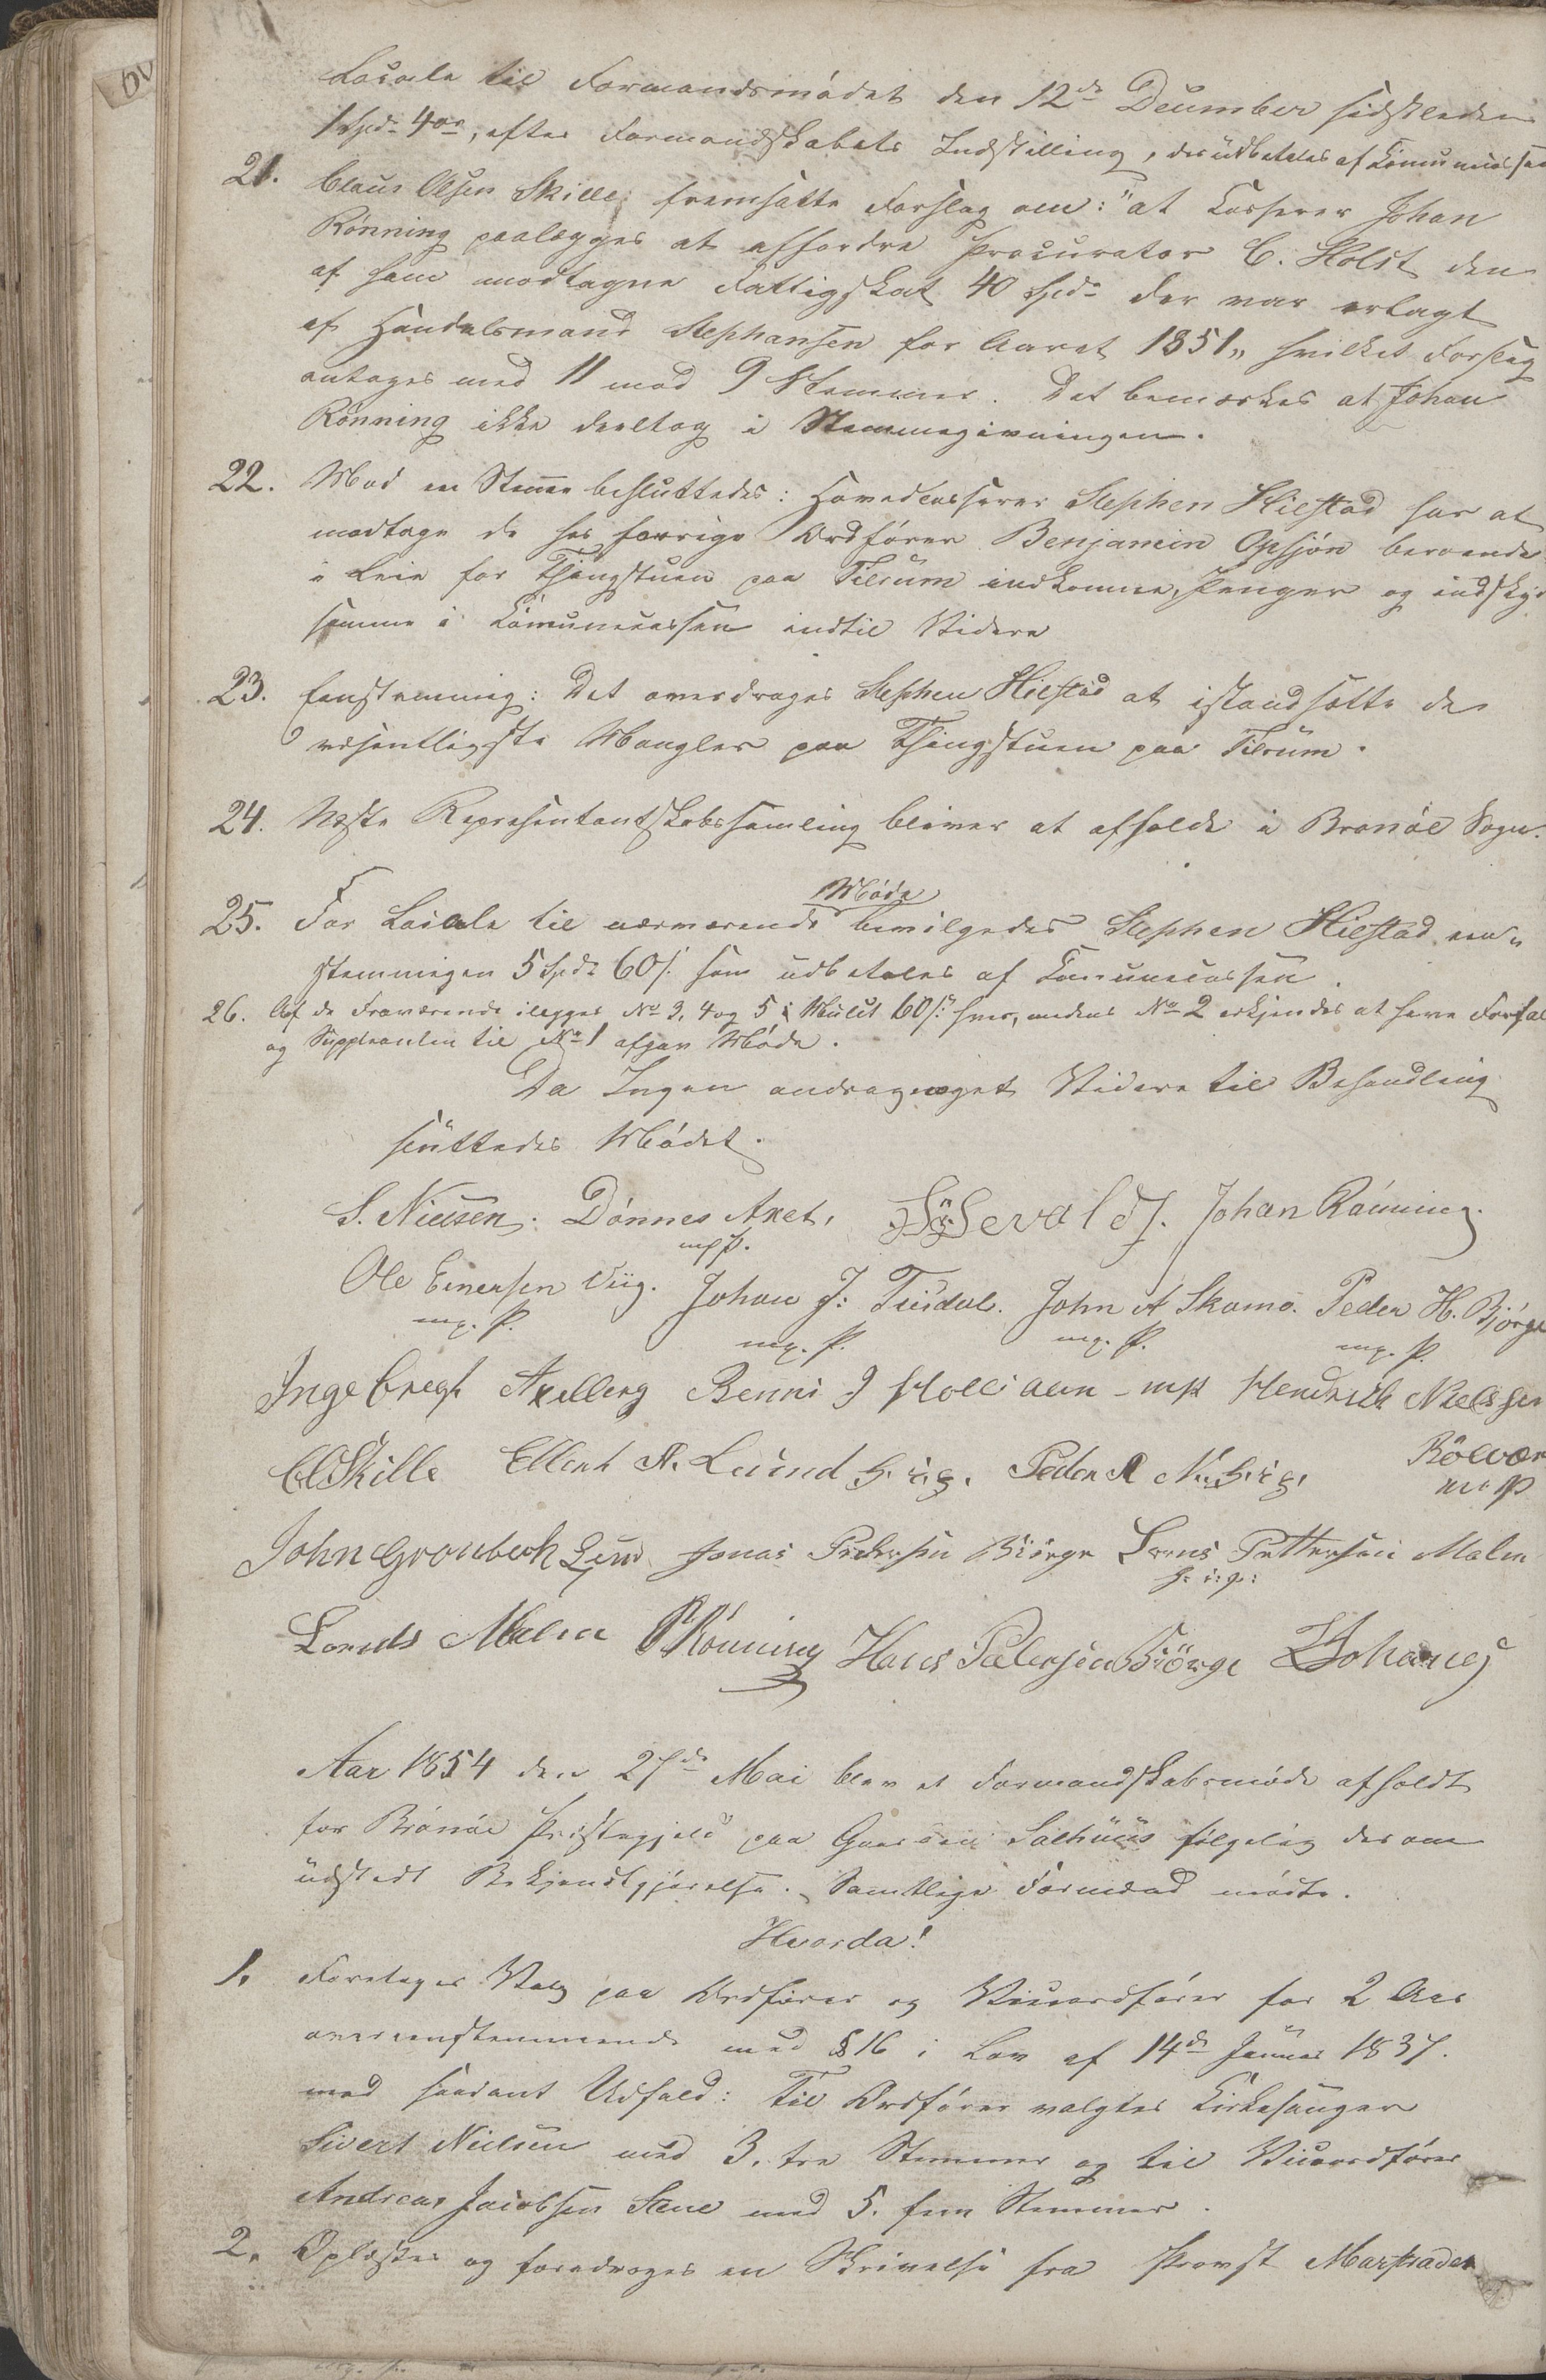 Locale til Formandsmödet den 12de December sidstleden
1 Spd. 4 ort, efter Formandskabets Indstilling, der udbetales af Communecassen
21. Claus Olsen Skille fremsatte Forslag om: "at Kasserer Johan
Rønning paalægges at affordre Procurator C. Holst den
af ham modtagne Fattigskat 40 Spd. der var erlagt
af Handelsmand Stephansen for Aaret 1851" hvilket Forslag
antages med 11 mod 9 Stemmer. Det bemærkes at Johan
Rønning ikke deeltog i Stemmegivningen.
22. Mod en Stemme besluttedes: Hovedcasserer Stephen Hilstad har at
modtage de hos forrige Ordfører Benjamin Opsjøn beroende
i Leie for Thingstuen paa Tilrum indkomne Penger og indskyde
samme i Communecassen indtil Videre
23. Eenstemmig: Det overdrages Stephen Hilstad at istandsætte de
væsentligste Mangler paa Thingstuen paa Tilrum.
24. Næste Repræsentantskabssamling bliver at afholde i Brønøe Sogn.
25. For Locale til nærværende Møde bevilgedes Stephen Hilstad een-
stemmigen 5 Spd. 60 s. som udbetales af Communecassen.
26. Af de Fraværende ilægges No 3, 4 og 5 i Mulct 60 s. hver, medens No 2 erkjendes at have Forfald
og Suppleanten til No 1 afgav Møde.
Da Ingen androg noget Videre til Behandling
sluttedes Mødet.
S. Nielsen. Dønnes Axel. Sevalds. Johan Rønning.
mp P.
Ole Einersen Viig. Johan J: Tilrdal. John A Skomo. Peder H. Bjørge
m. P. m. P. m. P. m. P.
Ingebregt Axelberg Benni J Hollian - mp Hendrich Nielsen
Rölvær
m P
ClSkille Ellert A. Lund h. i. g. Peder A N. h. i. g.
John Grønbech Lund Jonas Pedersen Biörge Lorns Pettersen Malm
h: i: g:
Lornds Malm PRønning Hans Pedersen Biörge Johans
Aar 1854 den 27de Mai blev et Formandskabsmøde afholdt
for Brønøe Præstegjeld paa Gaarden Salhuus følgelig derom
udstedt Bekjendtgjørelse. Samtlige Formænd mødte.
Hvorda!
1. Foretoges Valg paa Ordfører og Viceordfører for 2 Aar
overeenstemmende med § 16 i Lov af 14de Januar 1837.
med saadant Udfald: Til Ordfører valgtes Kirkesanger
Sivert Nielsen med 3. tre Stemmer og til Viceordfører
Andreas Jacobsen Sæne med 5. fem Stemmer.
2. Oplæstes og foredroges en Skrivelse fra Provst Marstrander